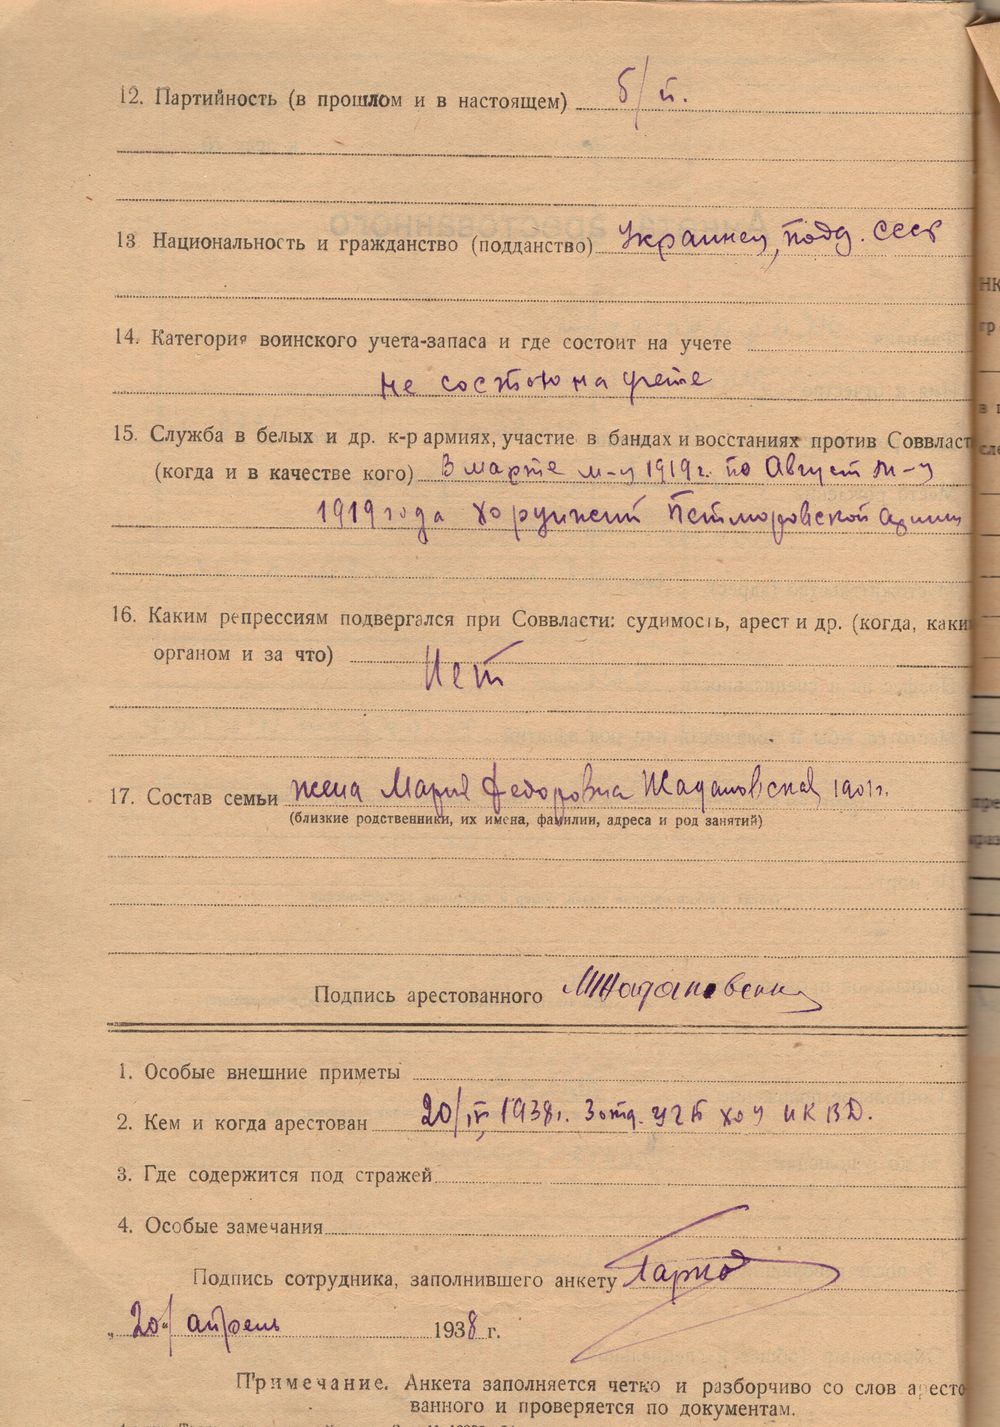 12. Партийность (в прошлом и в настоящем) б/п.
13. Национальность и гражданство (подданство) Украинец, подд. СССР
14. Категория воинского учета-запаса и где состоит на учете
не состою на учете
15. Служба в белых и др. к-р армиях, участие в бандах и восстаниях против Соввласт
(когда и в качестве кого) З марта м-ц 1919 г. по Август м-ц
1919 года хорунжий Петлюровской армии
16. Каким репрессиям подвергался при Соввласти: судимость, арест и др. (когда, каки
органом и за что) Нет
17. Состав семьи жена Мария Федоровна Жадановская 1901 г.
(близкие родственники, их имена, фамилии, адреса и род занятий)
Подпись арестованного Жадановский
1. Особые внешние приметы
2. Кем и когда арестован 20/IV, 1938 г. 3 отд. УГБ ХОУ НКВД.
3. Где содержится под стражей
4. Особые замечания
Подпись сотрудника, заполнившего анкету
„20“ апрель 1938 г.
Примечание. Анкета заполняется четко и разборчиво со слов аресто
ванного и проверяется по документам.